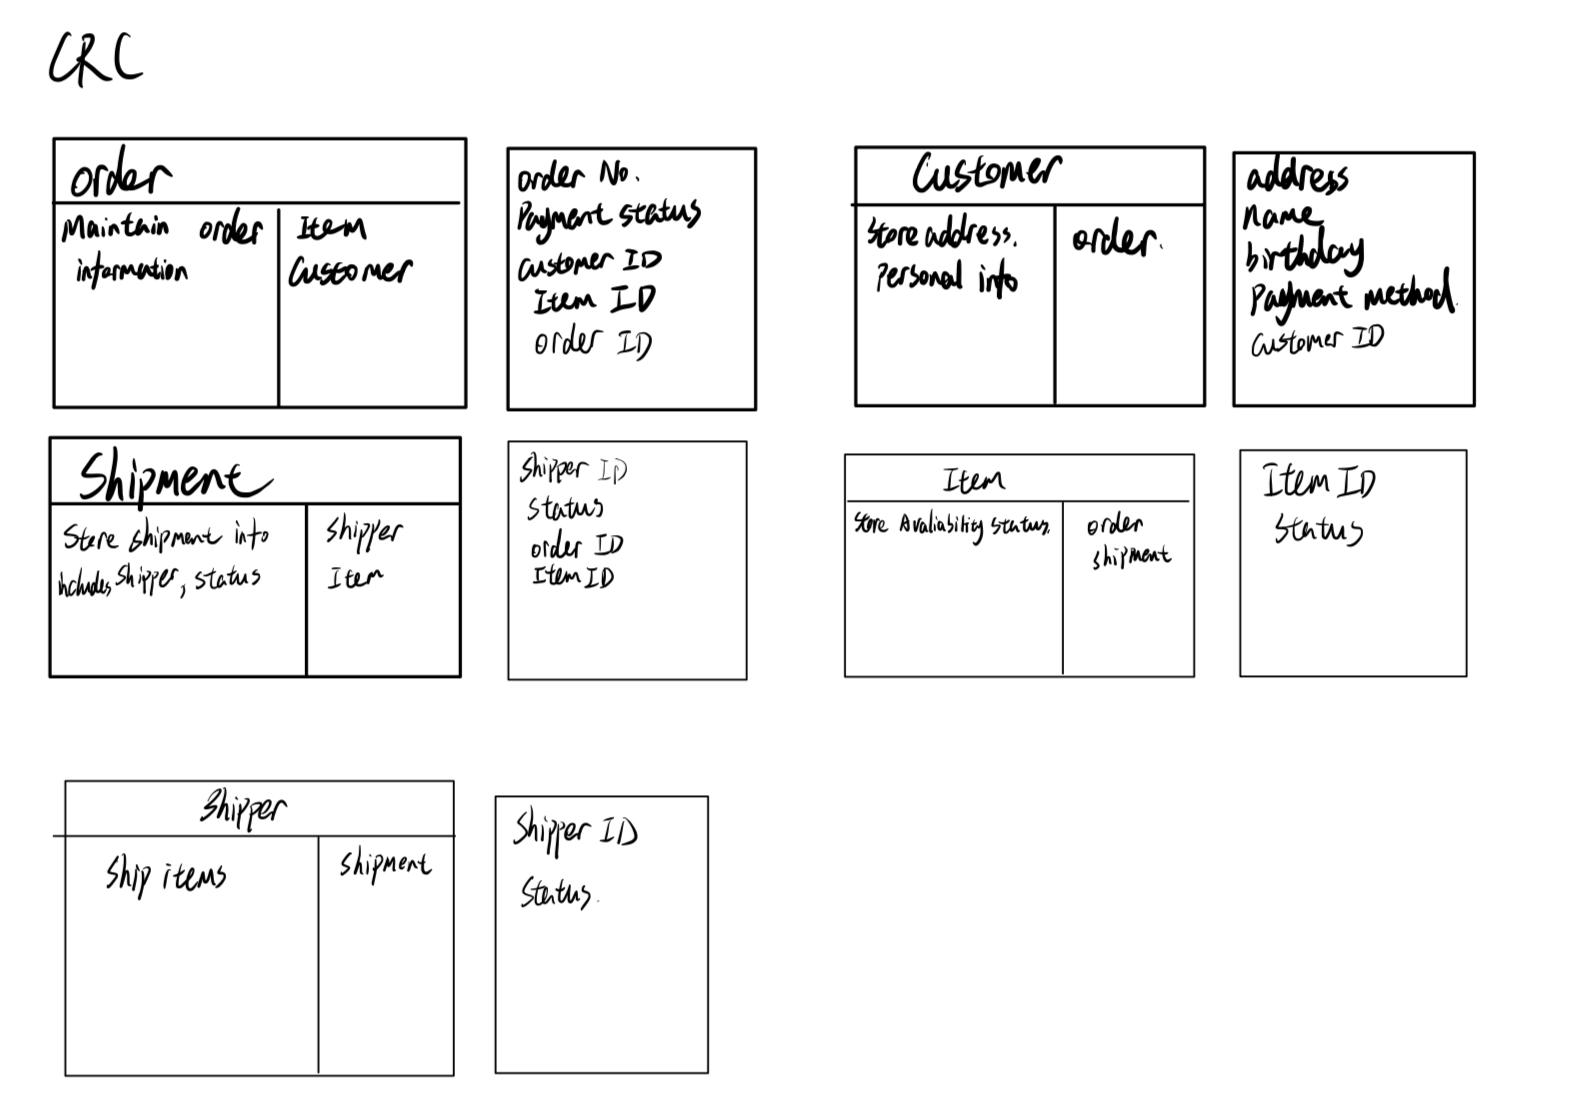 CRC
order
Maintain order
information
Item
Customer
order No.
Payment status
Customer ID
Item ID
order ID
Customer
Store address.
Personal info
order.
address
name
birthday
Payment method.
Customer ID
Shipment
Store shipment info
includes shipper, status
shipper
Item
Shipper ID
status
order ID
Item ID
Item
Store Avaliability status.
order
shipment
Item ID
status
Shipper
Ship items
shipment
Shipper ID
Status.